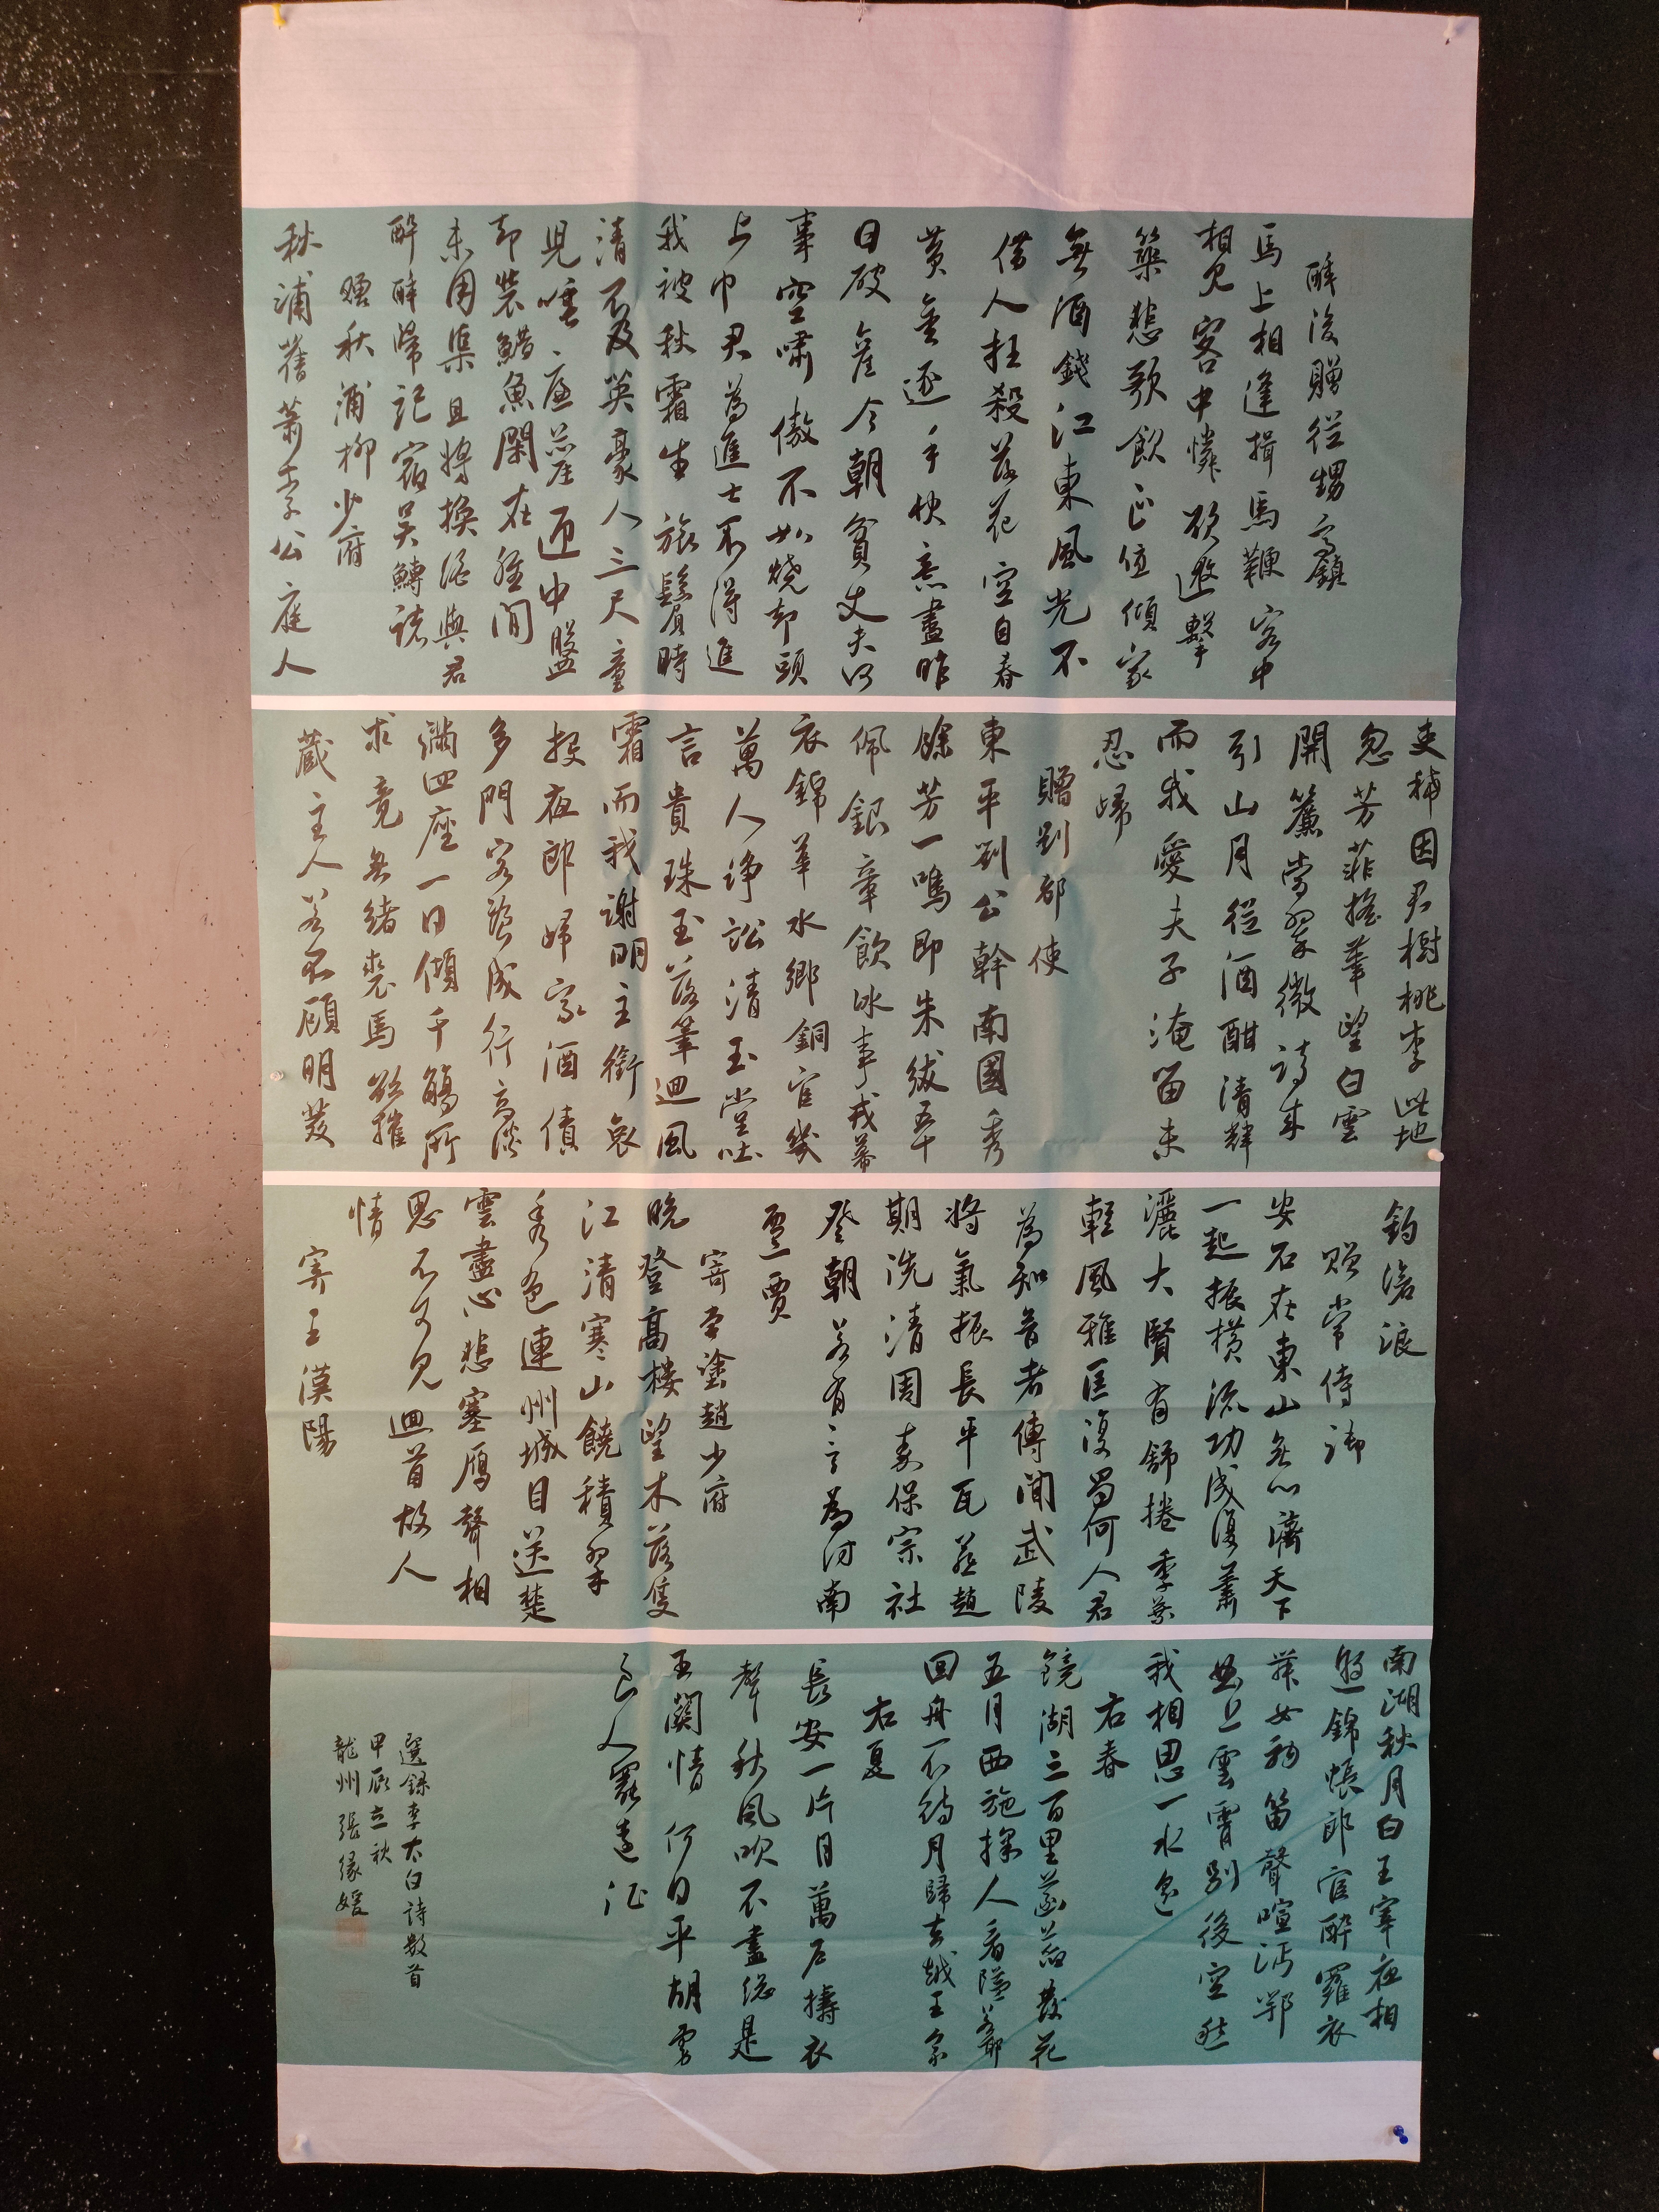 醉後贈從甥高鎮
馬上相逢揖馬鞭客中
相見客中憐欲邀擊
築悲歌飲正值傾家
無酒錢江東風光不
借人枉殺落花空自春
黃金逐手快意盡昨
日破產今朝貧丈夫何
事空嘯傲不如燒却頭
上巾君為進士不得進
我被秋霜生旅鬢時
清不及英豪人三尺童
兒唾廉藺匣中盤
劍裝䱜魚閑在腰間
未用渠且將換酒與君
醉醉歸託宿吳鱄諸
贈秋浦柳少府
秋浦舊蕭索公庭人
吏稀因君樹桃李此地
忽芳菲搖筆望白雲
開簾當翠微詩來
引山月從酒酣清輝
而我愛夫子淹留未
忍歸
贈劉都使
東平劉公幹南國秀
餘芳一鳴即朱紱五十
佩銀章飲冰事戎幕
衣錦華水鄉銅官幾
萬人諍訟清玉堂吐
言貴珠玉落筆迴風
霜而我謝明主銜哀
投夜郎歸家酒債
多門客粲成行高談
滿四座一日傾千觴所
求竟無緒裘馬欲摧
藏主人若不顧明發
釣滄浪
贈常侍御
安石在東山無心濟天下
一起振橫流功成復蕭
灑大賢有舒捲季葉
輕風雅匡復屬何人君
為知音者傳聞武陵
將氣振長平瓦燕趙
期洗清周秦保宗社
登朝若有言為訪南
遷賈
寄當塗趙少府
晚登高樓望木落雙
江清寒山饒積翠
秀色連州城目送楚
雲盡心悲塞鴈聲相
思不可見迴首故人
情
寄王漢陽
南湖秋月白王宰夜相
邀錦帳郎官醉羅衣
舞女嬌笛聲喧沔鄂
曲上雲霄別後空愁
我相思一水遙
右春
鏡湖三百里菡萏發荷花
五月西施採人看隘若耶
回舟不待月歸去越王家
右夏
長安一片月萬戶擣衣
聲秋風吹不盡總是
玉關情何日平胡虜
良人罷遠征
選錄李太白詩數首
甲辰立秋
龍州張緣媛